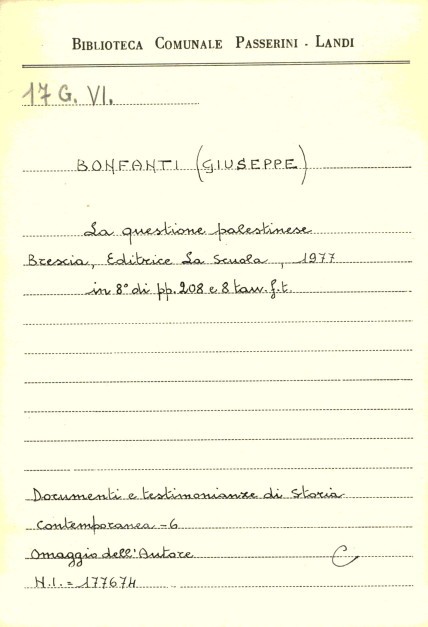 BIBLIOTECA COMUNALE PASSERINI - LANDI
17 G. VI.
BONFANTI (GIUSEPPE)
La questione palestinese
Brescia, Editrice La Scuola, 1977
in 8° di pp. 208 e 8 tav. f.t.
Documenti e testimonianze di Storia
Contemporanea - 6
Omaggio dell'Autore C
N.I. = 177674